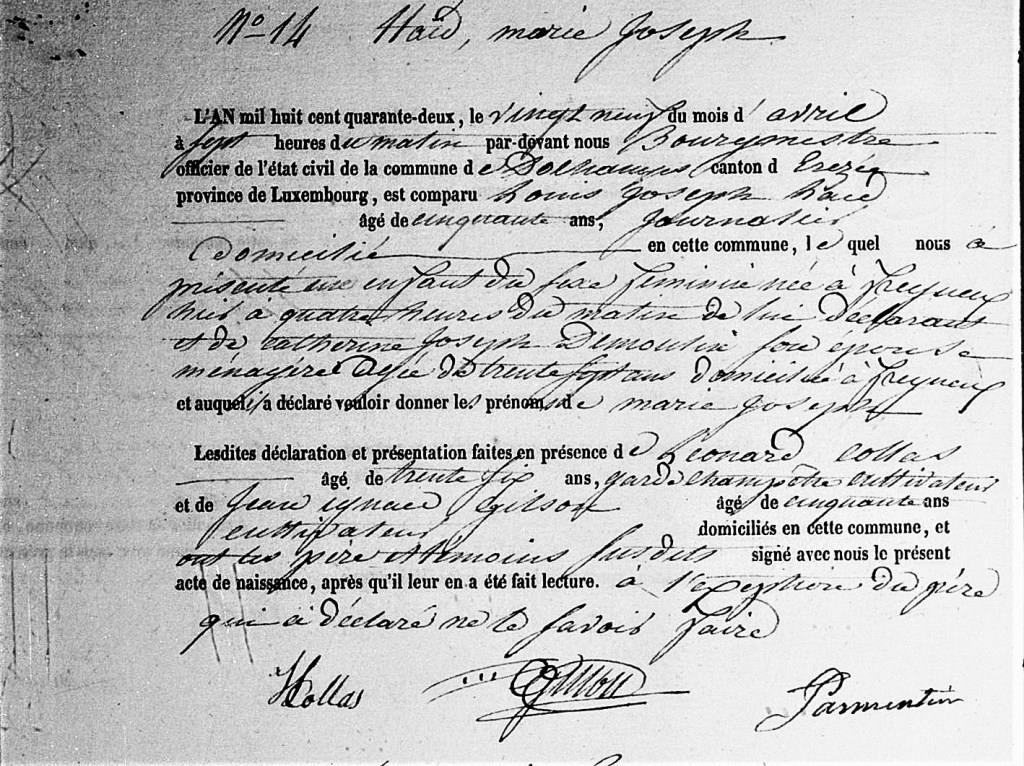 N° 14 Haid, marie Joseph
L'AN mil huit cent quarante-deux, le vingt neuf du mois d'avril
à sept heures du matin par-devant nous Bourgmestre
officier de l'état civil de la commune de Dochamps canton d'Erezée
province de Luxembourg, est comparu Louis Joseph haid
âgé de cinquante ans, Journalier
domicilié en cette commune, le quel nous a
présenté un enfant du sexe feminin née à freyneux
hier à quatre heures du matin de lui déclarant
et de catherine Joseph Demoulin son épouse
ménagère agée de trente sept ans domiciliée à freyneux
et auquel il a déclaré vouloir donner les prénoms de marie Joseph
Lesdites déclaration et présentation faites en présence de Léonard collas
âgé de trente six ans, garde champêtre cultivateur
et de Jean ignace Gilson âgé de cinquante ans
cultivateur domiciliés en cette commune, et
ont les père et témoins susdits signé avec nous le présent
acte de naissance, après qu'il leur en a été fait lecture. à l'exeption du père
qui a déclaré ne le savoir faire
Collas Gilson Parmentier